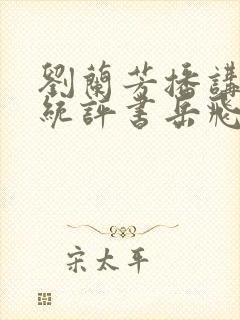 劉蘭芳播講
統評書岳飛
宋太平